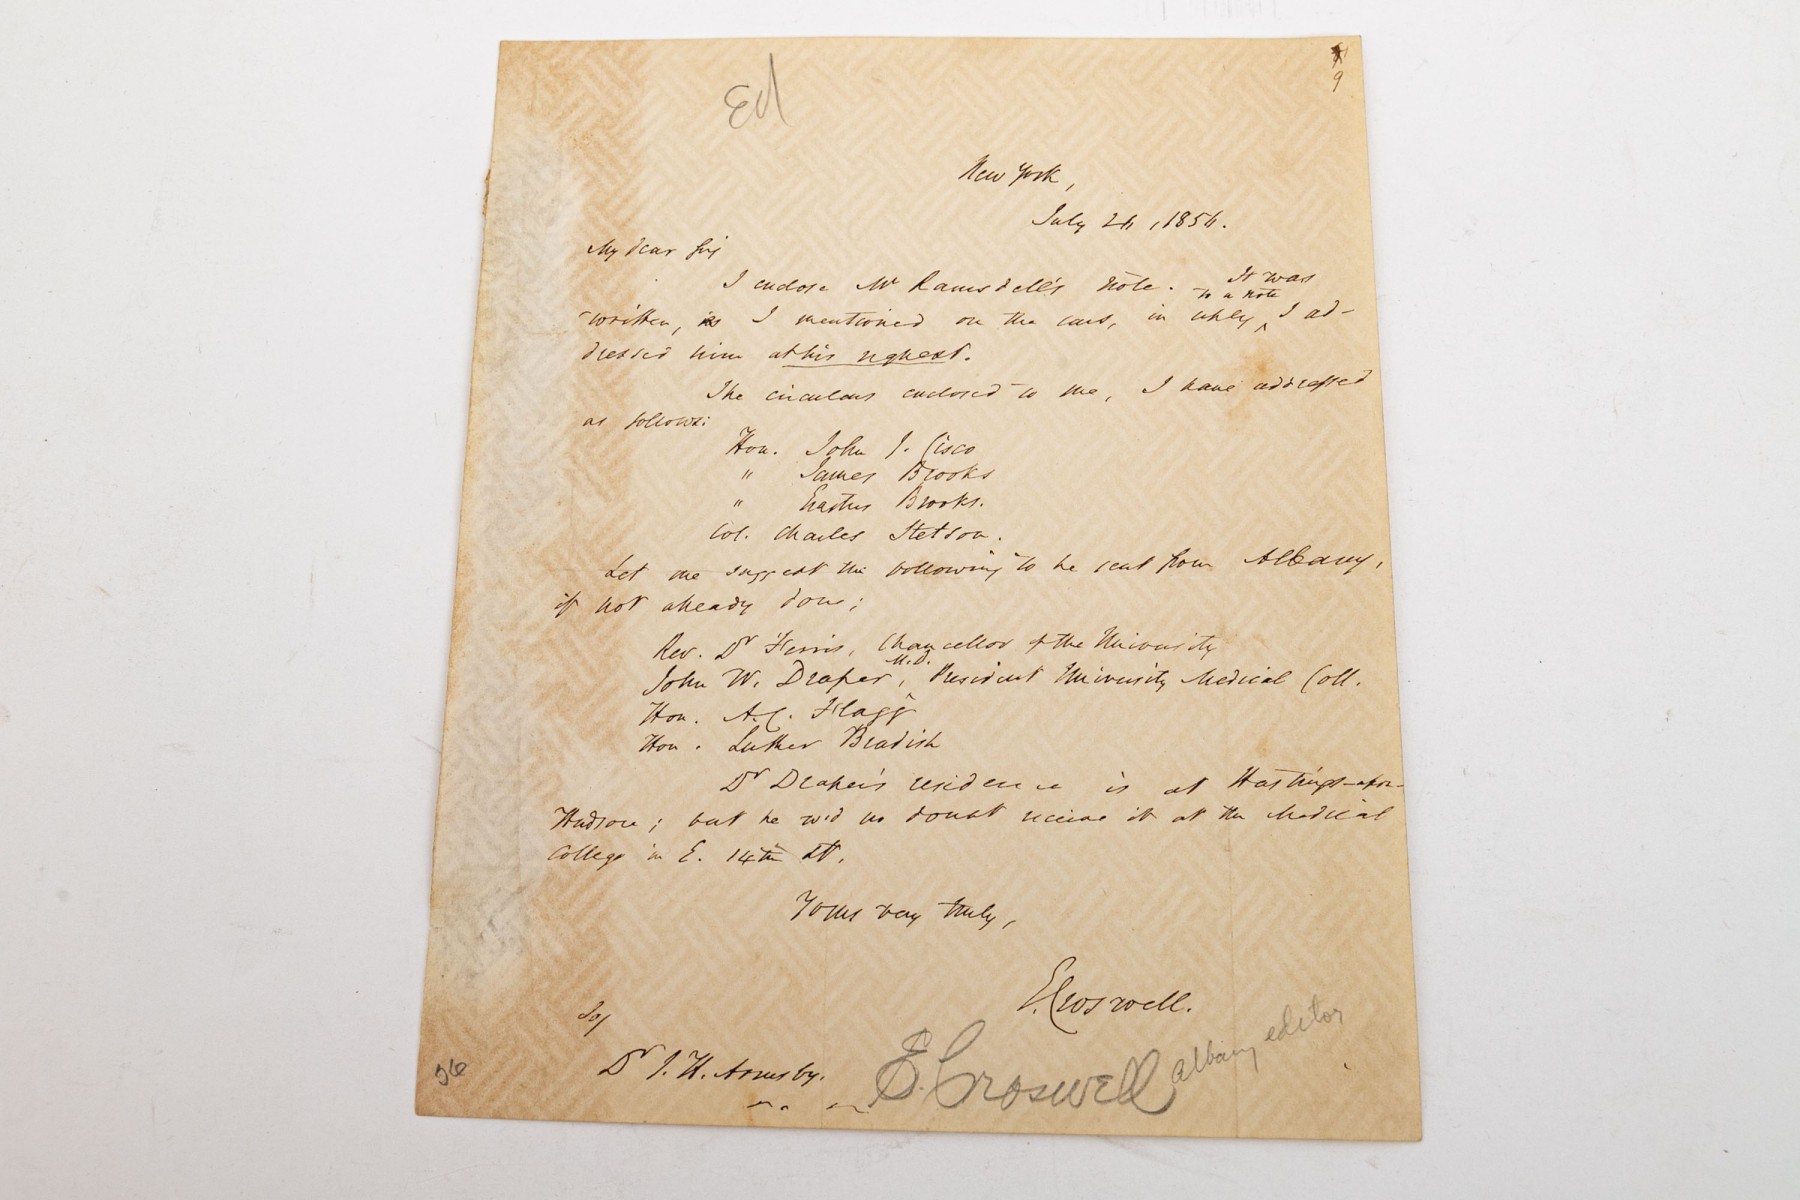 Ed
9
New York,
July 24, 1854.
My dear Sir
I enclose Mr Ramsdell's note. It was
written, as I mentioned on the cars, in reply to a note I ad-
dressed him at his request.
The circulars enclosed to me, I have addressed
as follows:
Hon. John J. Cisco
" James Brooks
" Erastus Brooks.
Col. Charles Stetson.
Let me suggest the following to be sent from Albany,
if not already done;
Rev. Dr Ferris, Chancellor of the University
John W. Draper, M.D. President University Medical Coll.
Hon. A.C. Flagg
Hon. Luther Bradish
Dr Draper's residence is at Hastings-upon-
Hudson; but he w'd no doubt receive it at the Medical
College in E. 14th St.
Yours very truly,
E. Croswell.
Dr J. H. Armsby.
E. Croswell Albany editor
56